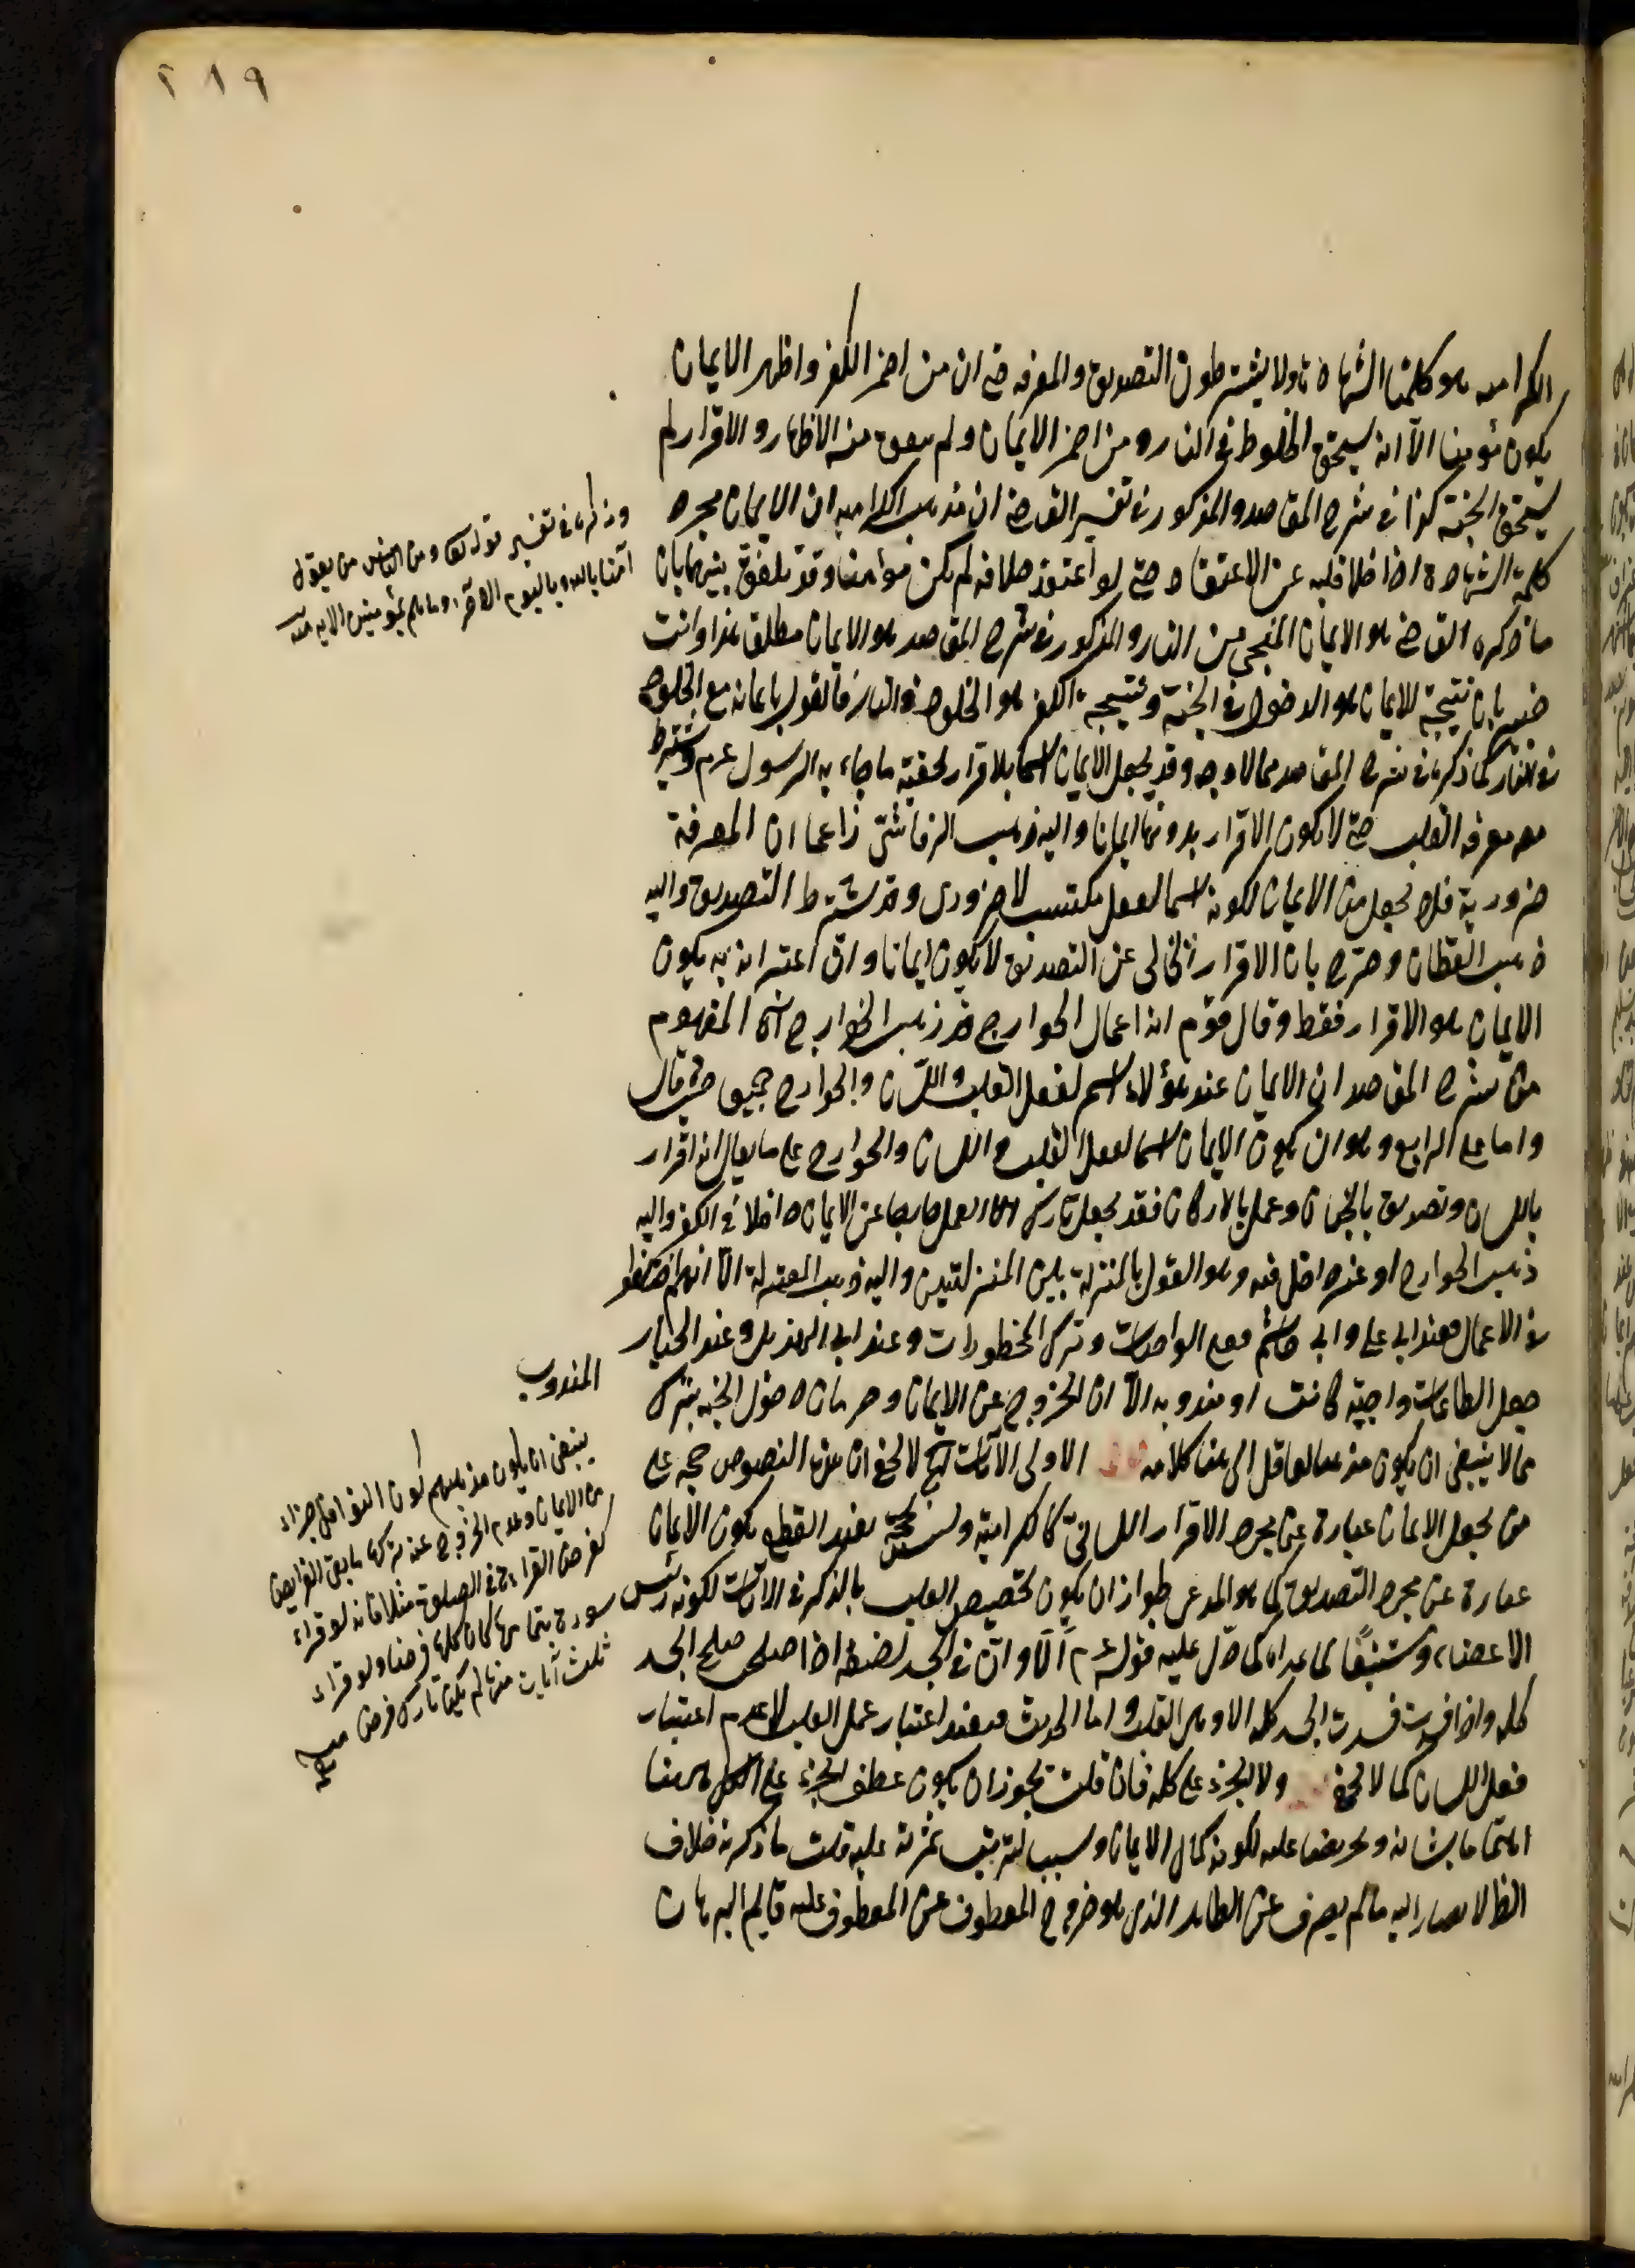 ٢١٩
الكراميه هو كلمتا الشهادة ولا يشترطون التصديق والمعرفه حتى ان من اضمر الكفر واظهر الايمان
يكون مؤمنا الا انه يستحق الخلود في النار ومن اضمر الايمان ولم يتفق منه الاظهار والاقرار لم
يستحق الجنة كذا في شرح المقاصد والمذكور في تفسير القاضي ان مذهب الكراميه ان الايمان مجرد
كلمة الشهادة اذا خلا قلبه عن الاعتقاد حتى لو اعتقد خلافه لم يكن مؤمنا وقد يلفق بينهما بان
ما ذكره القاضي هو الايمان المنجي من النار والمذكور في شرح المقاصد هو الايمان مطلق هذا وانت
خبير بان نتيجة الايمان هو الدخول في الجنة ونتيجة الكفر هو الخلود في النار فالقول بايمانه مع الخلود
في النار كما ذكره في شرح المقاصد مما لا وجه وقد يجعل الايمان اسما بلاقرار بحقية ما جاء به الرسول عم ويشترط
معه معرفة القلب حتى لا يكون الاقرار بدونها ايمانا واليه ذهب الرقاشي زاعما ان المعرفة
ضرورية فلا يجعل من الايمان لكونه اسما لفعل مكتسب لا ضروري وقد يشترط التصديق واليه
ذهب القطان وصرح بان الاقرار الخالي عن التصديق لا يكون ايمانا وان اعتبرانه به يكون
الايمان هو الاقرار فقط وقال قوم انه اعمال الجوارح قد ذهب الخوارج اه المفهوم
من شرح المقاصد ان الايمان عند هؤلاء اسم لفعل القلب واللسان والجوارح جميعا حيث قال
واما على الرابع وهو ان يكون الايمان اسما لفعل القلب واللسان والجوارح على ما يقال انه اقرار
باللسان وتصديق بالجنان وعمل بالاركان فقد يجعل تارك العمل خارجا عن الايمان داخلا في الكفر واليه
ذهب الخوارج او غير داخل فيه وهو القول بالمنزلة بين المنزلتين واليه ذهب المعتزلة الا انهم اختلفوا
في الاعمال فعند ابي علي وابي هاشم فعل الواجبات وترك المحظورات وعند ابي الهذيل وعند الجبار
فعل الطاعات واجبة كانت او مندوبه الا ان الخروج عن الايمان وحرمان دخول الجنه بترك
المندوب
مما لا ينبغي ان يكون مذهبا لعاقل الى هنا كلامه الاولى الآيات لا يخفى ان هذه النصوص حجه على
من يجعل الايمان عبارة عن مجرد الاقرار اللساني كالكرامية وليست بحجة يفيد القطع بكون الايمان
عبارة عن مجرد التصديق كما هو المدعى لجواز ان يكون تخصيص القلب بالذكر في الايات لكونه رئيس
الاعضاء ومستتبعا لما عداه كما دل عليه قوله عم الا وان في الجسد لمضغة اذا صلحت صلح الجسد
كله واذا فسدت فسدت الجسد كله الا وهي القلب واما الحديث فيفيد اعتبار عمل القلب لا عدم اعتبار
فعل اللسان كما لا يخفى ولا الجزء على كله فان قلت يجوز ان يكون عطف الجزء على الكل ههنا
اهتماما بشانه وتحريضا عليه لكونه كمال الايمان وسبب لترتب ثمرته عليه قلت ما ذكرته خلاف
الظ لا يصار اليه ما لم يصرف عن الظاهر الذي هو خروج المعطوف عن المعطوف عليه قايم البرهان
وذكره في تفسير قوله تعالى ومن الناس من يقول
آمنا بالله وباليوم الاخر وما هم بمؤمنين الايه منه
ينبغي ان يكون مذهبهم كون النوافل جزاء
من الايمان وعدم الخروج عنه بتركها باقي الفرايض
كفرض القراءة في الصلوة مثلا فانه لو قراء
سورة بتمامها كان كلها فرضا ولو قراء
ثلث آيات منها لم يكن تارك فرض منه